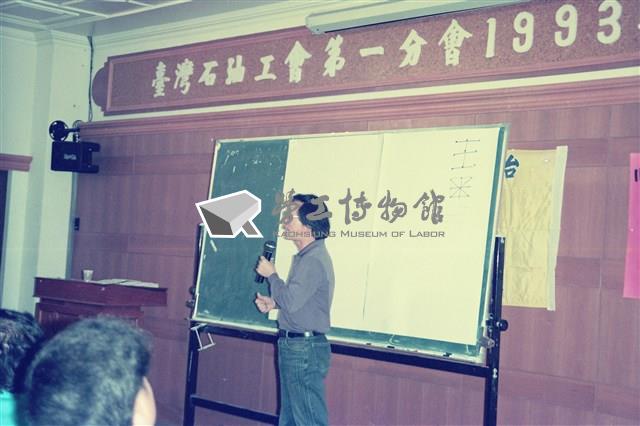 臺灣石油工會第一分會1993
台
勞工博物館
KAOHSIUNG MUSEUM OF LABOR